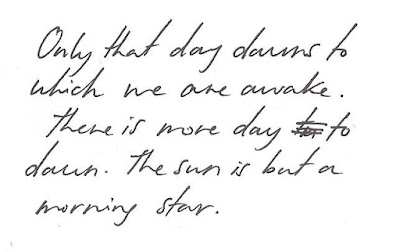 Only that day dawns to
which we are awake.
There is more day to
dawn. The sun is but a
morning star.